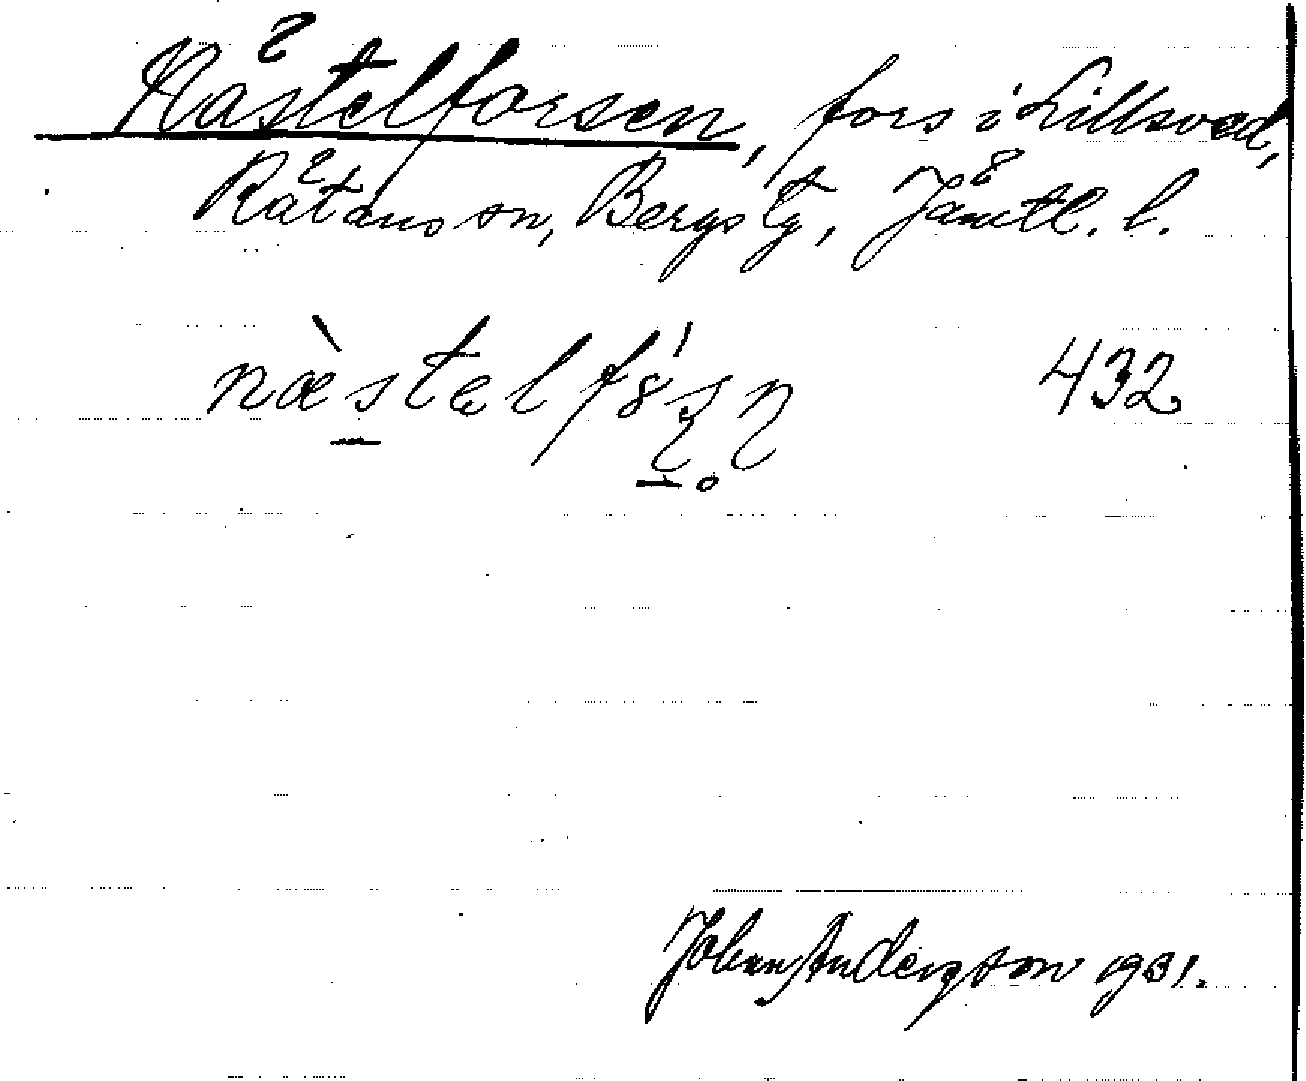 Nästelforsen, fors i Lillsved,
Rätans sn, Bergs tg, Jämtl. l.
næ̀stəlfɷ́ʂn̥ 432
Johan Andersson 1931.